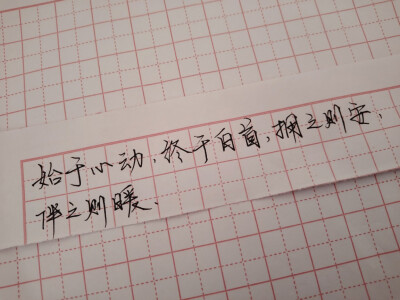 始于心动，终于白首，拥之则安，
伴之则暖.